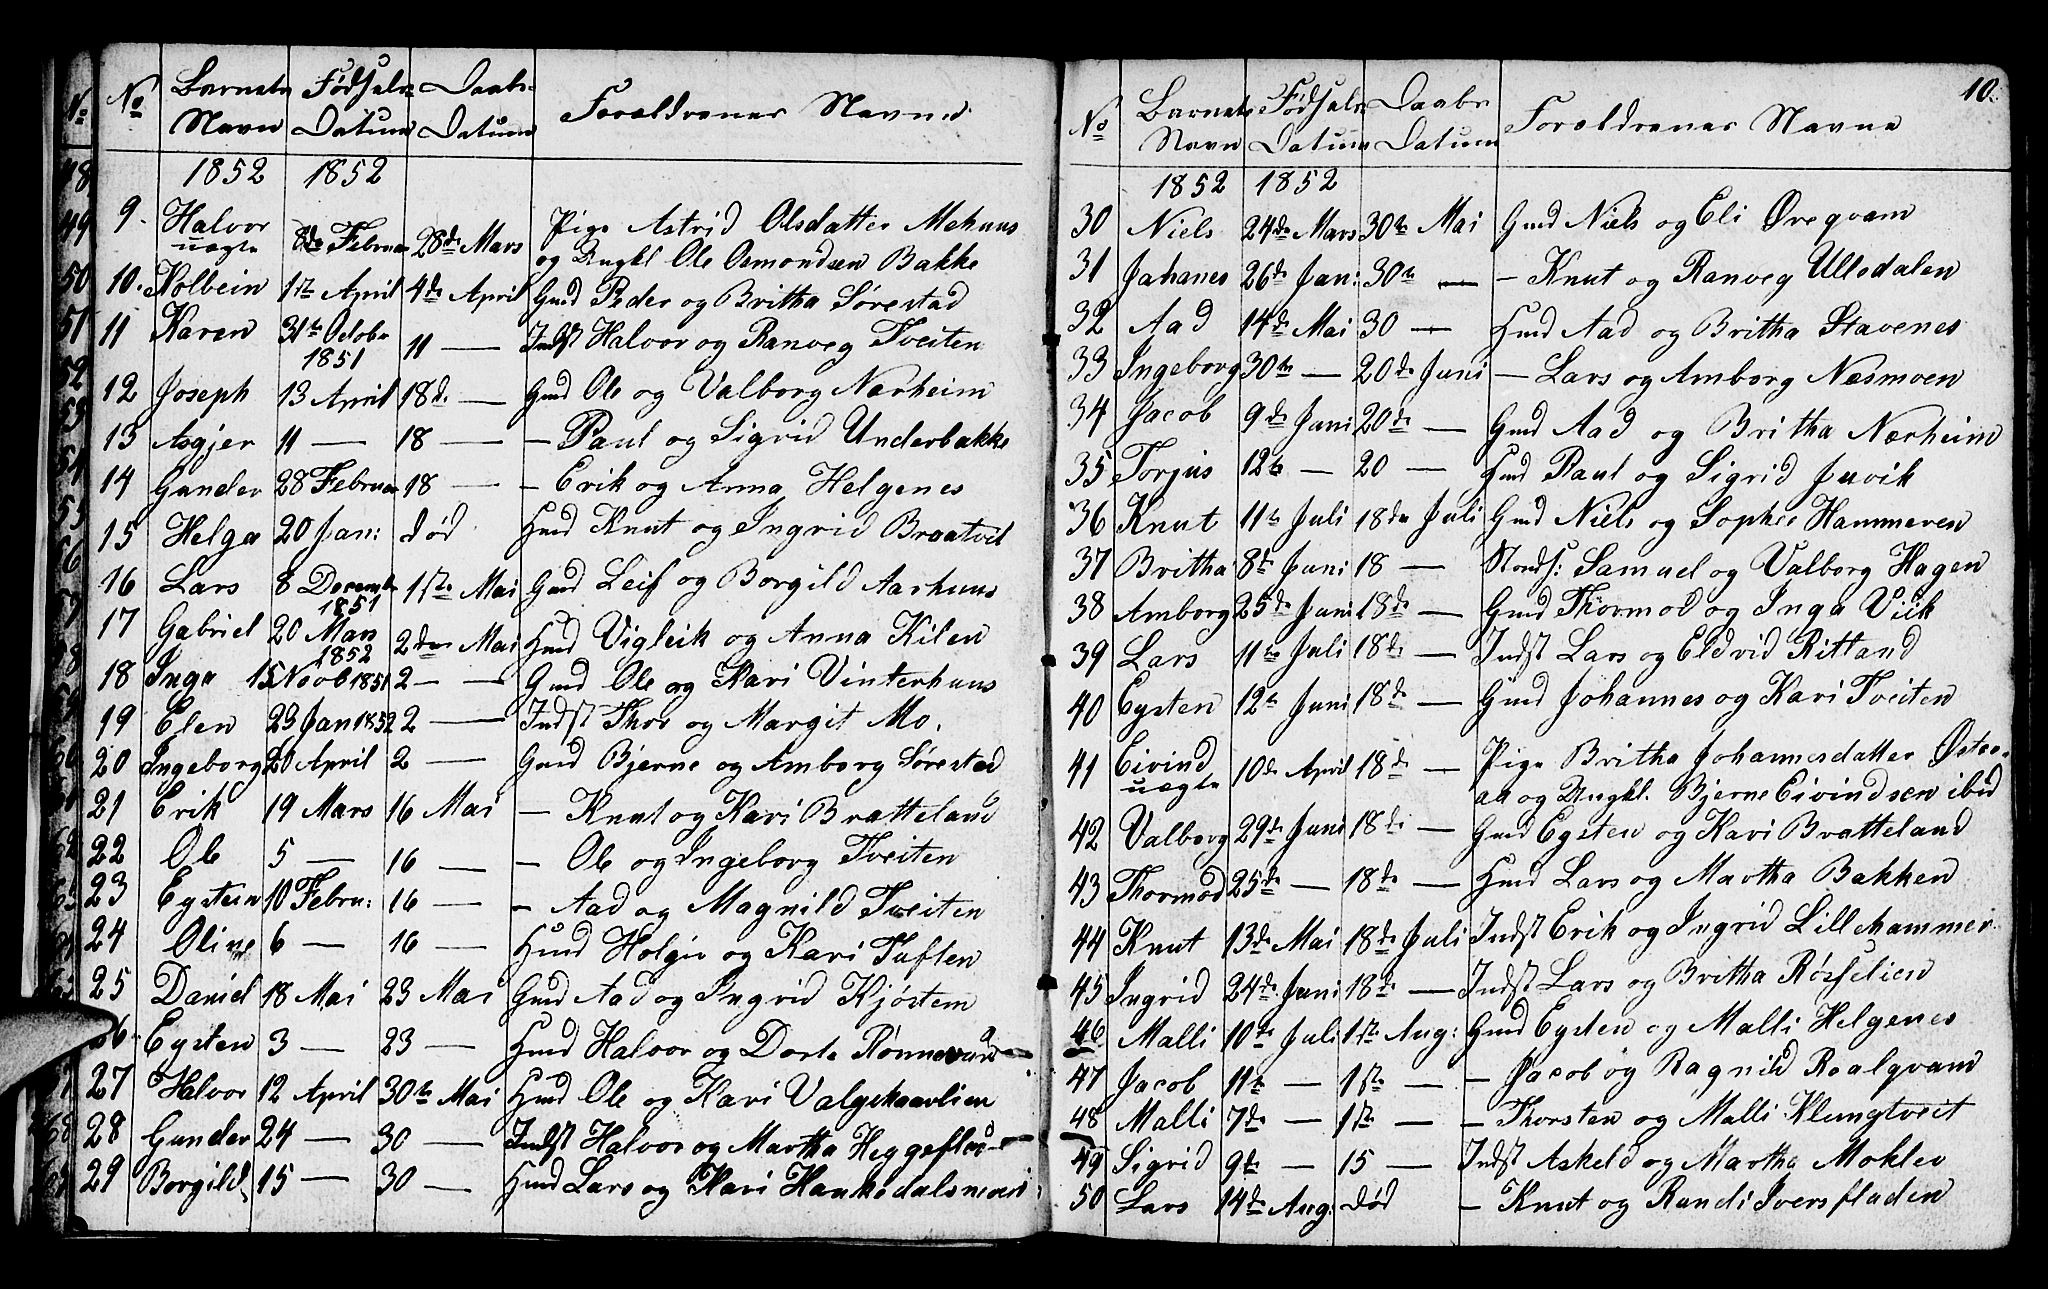 No Barnets Navn Fødsels Datum Daabs Datum Forældrenes Navne
1852 1852
9. Halvor uægte 8de Februar 28de Mars Pige Astrid Olsdatter Mehuus
og Ungkl Ole Osmondsen Bakke
10. Kolbein 1ste April 4de April Gmd Peder og Britha Sørestad
11 Karen 31te Octobr 1851 11 — Indst Halvor og Ranveg Tveiten
12 Joseph 13 April 18de — Gmd Ole og Valborg Nærheim
13 Asgjer 11 — 18 — - Paul og Sigrid Underbakke
14 Gunder 28 Februar 18 — - Erik og Anna Helgenes
15 Helga 20 Jan: død Hmd Knut og Ingrid Braatvit
16 Lars 8 Decembr 1851 1ste Mai Gmd Leif og Borgild Aarhuus
17 Gabriel 20 Mars 1852 2den Mai Hmd Vigleik og Anna Kilen
18 Inga 15 Novb 1851 2 — — Gmd Ole og Kari Vinterhuus
19 Elen 23 Jan 1852 2 — Indst Thor og Margit Mo.
20 Ingeborg 20 April 2 — Gmd Bjerne og Amborg Sørestad
21 Erik 19 Mars 16 Mai — Knut og Kari Bratteland
22 Ole 5 — 16 — — Ole og Ingeborg Tveiten
23 Eystein 10 Febru: 16 — — Aad og Magnild Tveiten
24 Oline 6 — 16 — Hmd Holgie og Kari Tuften
25 Daniel 18 Mai 23 Mai Gmd Aad og Ingrid Kjøstem
26 Eysten 3 — 23 — Hmd Halvor og Dorte Rønnevand
27 Halvor 12 April 30te Mai Hmd Ole og Kari Valgskaarlien
28 Gunder 24 — 30 — Indst Halvor og Martha Heggeflaa
29 Borgild 15 — 30 — Hmd Lars og Kari Haukedalsmoen
10.
No Barnets Navn Fødsels Datum Daabs Datum Forældrenes Navne
1852 1852
30 Niels 24de Mars 30te Mai Gmd Niels og Eli Øregvam
31 Jahanes 26de Jan: 30te — - Knut og Ranveg Ullsdalen
32 Aad 14de Mai 30 — Hmd Aad og Britha Stavenes
33 Ingeborg 30te — 20de Juni — Lars og Amborg Næsmoen
34 Jacob 9de Juni 20de — Gmd Aad og Britha Nærheim
35 Torjus 12te — 20 — Hmd Paul og Sigrid Juvik
36 Knut 11te Juli 18de Juli Gmd Niels og Sophie Hammeren
37 Britha 8de Juni 18 — Samuel og Valborg Hagen
38 Amborg 25de Juni 18de — Gmd Thormod og Inga Vik
39 Lars 11te Juli 18de — Indst Lars og Eldrid Ritland
40 Eysten 12te Juni 18de — Gmd Johannes og Kari Tveiten
41 Eivind uægte 10de April 18de — Pige Britha Johannesdatter Østeraa
og Ungkl. Bjerne Eivindsen ibid
42 Valborg 29de Juni 18de — Gmd Eysten og Kari Bratteland
43 Thormod 25de — 18de — Hmd Lars og Martha Bakken
44 Knut 13de Mai 18de Juli Indst Erik og Ingrid Lillehammer
45 Ingrid 24de Juni 18de — Indst Lars og Britha Røsselien
46 Malli 10de Juli 1ste Aug: Gmd Eysten og Malli Helgenes
47 Jacob 11te — 1ste — — Jacob og Ragnild Roalqvam
48 Malli 7de — 1ste — — Thorsten og Malli Klungtveit
49 Sigrid 9de — 15 — Indst Askeld og Martha Mokler
50 Lars 14de Aug: død — Knut og Randi Iversfladen